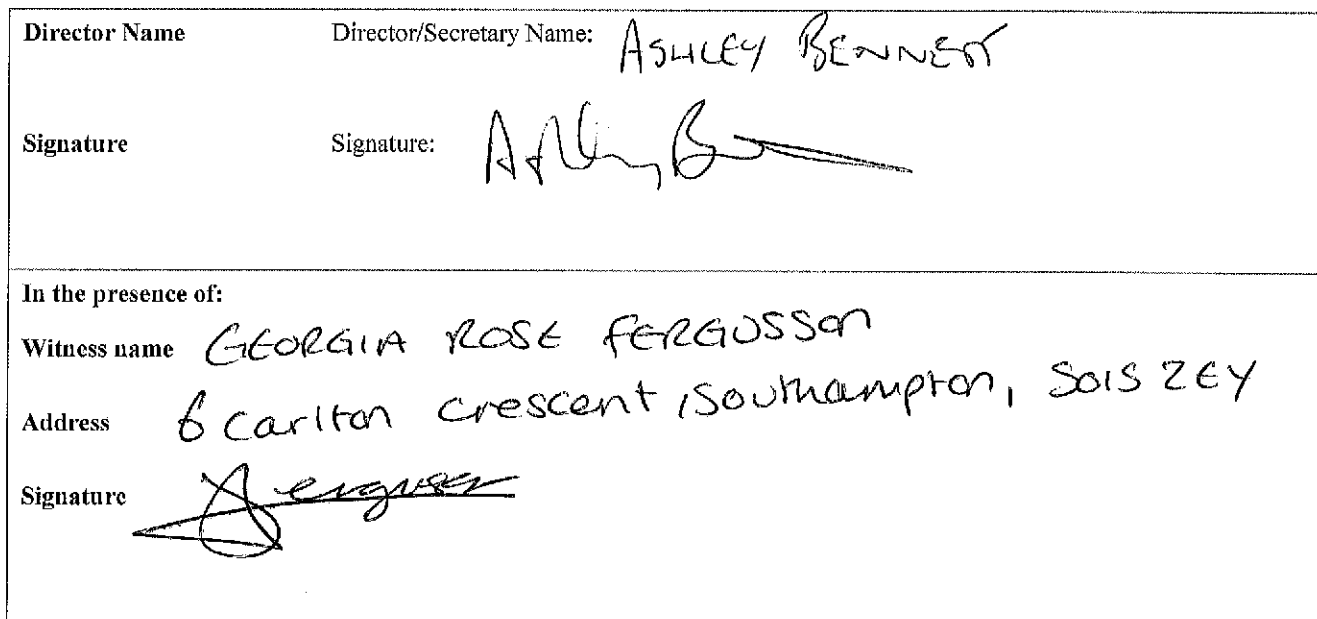 Director Name Director/Secretary Name: ASHLEY BENNETT
Signature Signature: Ashley B
In the presence of:
Witness name GEORGIA ROSE FERGUSSON
Address 6 Carlton Crescent, Southampton, SO15 2EY
Signature